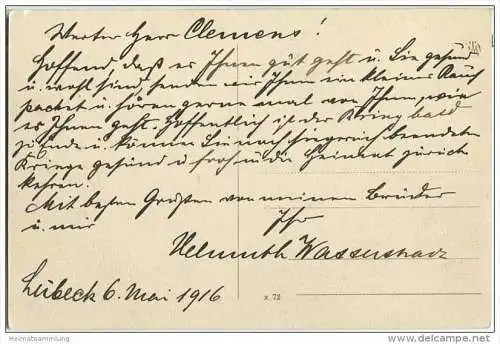 Werter Herr Clemens!
Hoffend, daß es Ihnen gut geht u. Sie gesund
u. wohl sind, senden wir Ihnen ein kleines Rauch
packet u. hören gerne mal von Ihnen, wie
es Ihnen geht. Hoffentlich ist der Krieg bald
zu Ende u. können Sie nach siegreich beendeten
Kriege gesund u. froh in die Heimat zurück
kehren.
Mit besten Grüßen von meinem Bruder
u. mir
Ihr
Helmuth
Lübeck 6. Mai 1916
x 72
Heimatsammlung
©delcampe.net